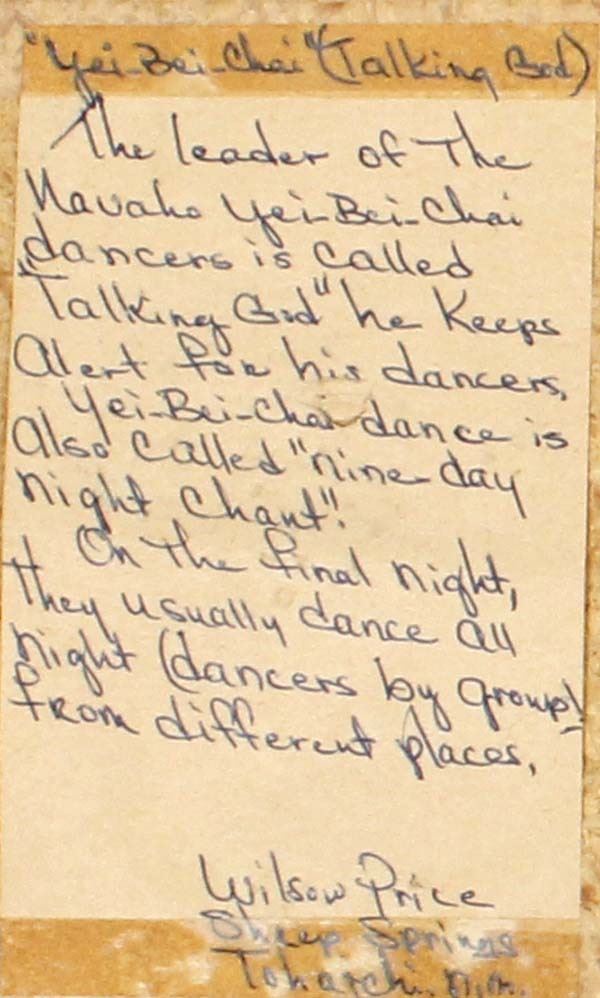 "Yei-Bei-Chai" (Talking God)
The leader of The
Navaho Yei-Bei-Chai
dancers is called
"Talking God" he Keeps
Alert for his dancers,
Yei-Bei-Chai dance is
also called "nine-day
night chant".
On the final night,
they usually dance all
night (dancers by group)
from different places,
Wilson Price
Sheep Springs
Tohatchi. N.M.